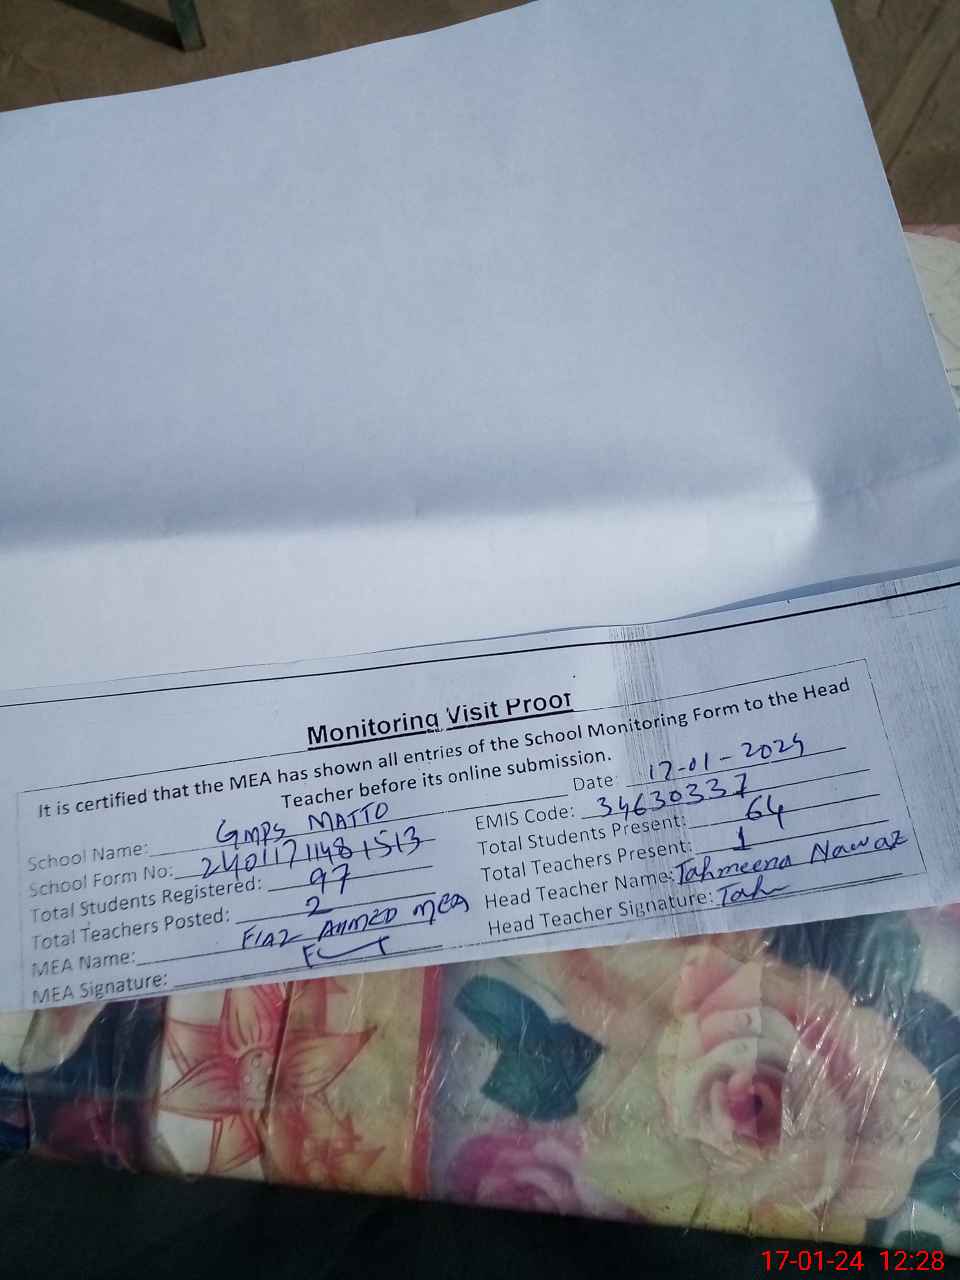 Monitoring Visit Proof
It is certified that the MEA has shown all entries of the School Monitoring Form to the Head
Teacher before its online submission.
School Name: GMPS MATTO
Date: 17-01-2024
School Form No: 2401171148 1513
EMIS Code: 34630337
Total Students Registered: 97
Total Students Present: 64
Total Teachers Posted: 2
Total Teachers Present: 1
MEA Name: FIAZ AHMED MEA
Head Teacher Name: Tahmeena Nawaz
MEA Signature:
Head Teacher Signature: Tah
17-01-24 12:28